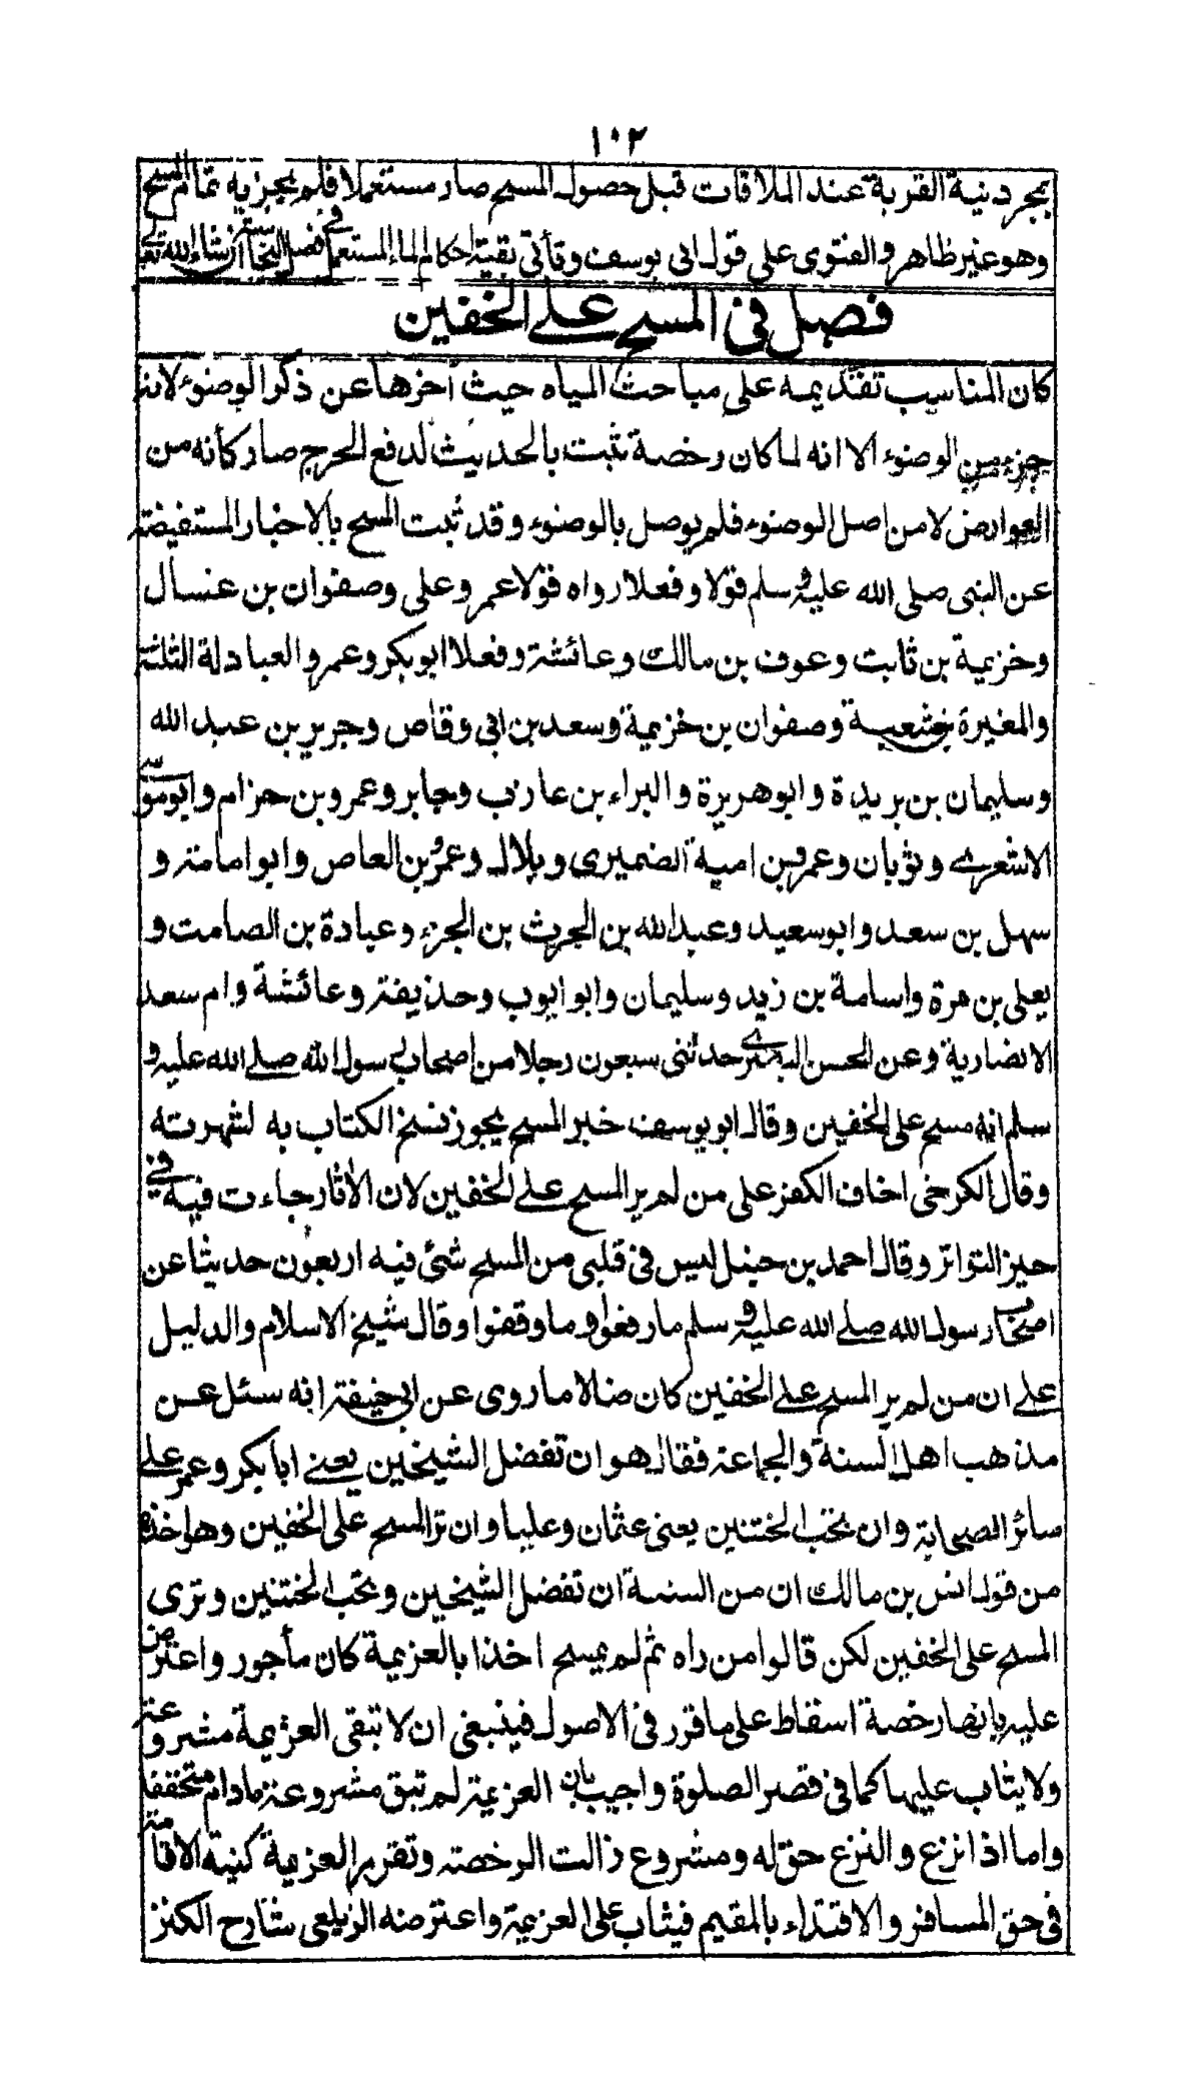 ١٠٢
بمجرد نية القربة عند الملاقات قبل حصول المسح صار مستعملا فلم يجز به تمام المسح
وهو غير ظاهر والفتوى على قول ابى يوسف وتأتى بقية احكام الماء المستعمل فى فصل البئر ان شاء الله تعالى
فصل فى المسح على الخفين
كان المناسب تقديمه على مباحث المياه حيث أخرها عن ذكر الوضوء لانه
جزء من الوضوء الا انه لما كان رخصة ثبت بالحديث لدفع الحرج صار كأنه من
العوارض لا من اصل الوضوء فلم يوصل بالوضوء وقد ثبت المسح بالاخبار المستفيضة
عن النبى صلى الله عليه وسلم قولا وفعلا رواه قولا عمر وعلى وصفوان بن عسال
وخزيمة بن ثابت وعوف بن مالك وعائشة وفعلا ابو بكر وعمر والعبادلة الثلثة
والمغيرة بن شعبة وصفوان بن خزيمة وسعد بن ابى وقاص وجرير بن عبد الله
وسليمان بن بريدة وابو هريرة والبراء بن عازب وجابر وعمرو بن حزام وابو موسى
الاشعرى وثوبان وعمرو بن امية الضميرى وبلال وعمرو بن العاص وابو امامة و
سهل بن سعد وابو سعيد وعبد الله بن الحرث بن الجزء وعبادة بن الصامت و
يعلى بن مرة واسامة بن زيد وسليمان وابو ايوب وحذيفة وعائشة وام سعد
الانصارية وعن الحسن البصرى حدثنى سبعون رجلا من اصحاب رسول الله صلى الله عليه و
سلم انه مسح على الخفين وقال ابو يوسف خبر المسح يجوز نسخ الكتاب به لشهرته
وقال الكرخى اخاف الكفر على من لم ير المسح على الخفين لان الأثار جاءت فيه فى
حيز التواتر وقال احمد بن حنبل ليس فى قلبى من المسح شئ فيه اربعون حديثا عن
اصحاب رسول الله صلى الله عليه وسلم ما رفعوا وما وقفوا وقال شيخ الاسلام والدليل
على ان من لم ير المسح على الخفين كان ضالا ما روى عن ابى حنيفة انه سئل عن
مذهب اهل السنة والجماعة فقال هو ان تفضل الشيخين يعنى ابا بكر وعمر على
سائر الصحابة وان تحب الختنين يعنى عثمان وعليا وان تر المسح على الخفين وهو اخذه
من قول انس بن مالك ان من السنة ان تفضل الشيخين وتحب الختنين وترى
المسح على الخفين لكن قالوا من راه ثم لم يمسح اخذا بالعزيمة كان مأجور واعترض
عليه بانها رخصة اسقاط على ما قرر فى الاصول فينبغى ان لا تبقى العزيمة مشروعة
ولا يثاب عليها كما فى قصر الصلوة واجيب بان العزيمة لم تبق مشروعة مادام متخففا
واما اذا نزع والنزع حق له ومشروع زالت الرخصة وتقرر العزيمة كنية الاقامة
فى حق المسافر والاقتداء بالمقيم فيثاب على العزيمة واعترضه الزيلعى شارح الكنز